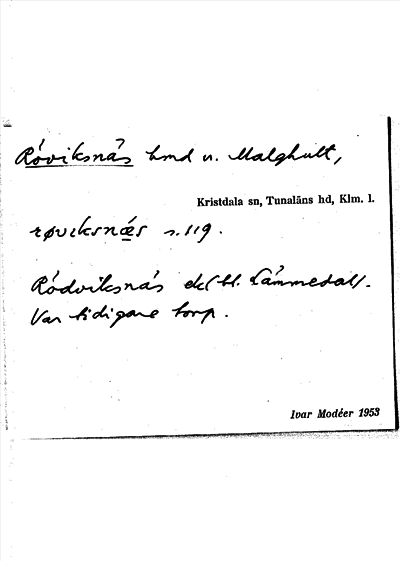 Röviksnäs hmd u. Malghult,
Kristdala sn, Tunaläns hd, Klm. l.
røviksnæs s. 119.
Rödviksnäs ek(bl. Lämmedal).
Var tidigare torp.
Ivar Modéer 1953